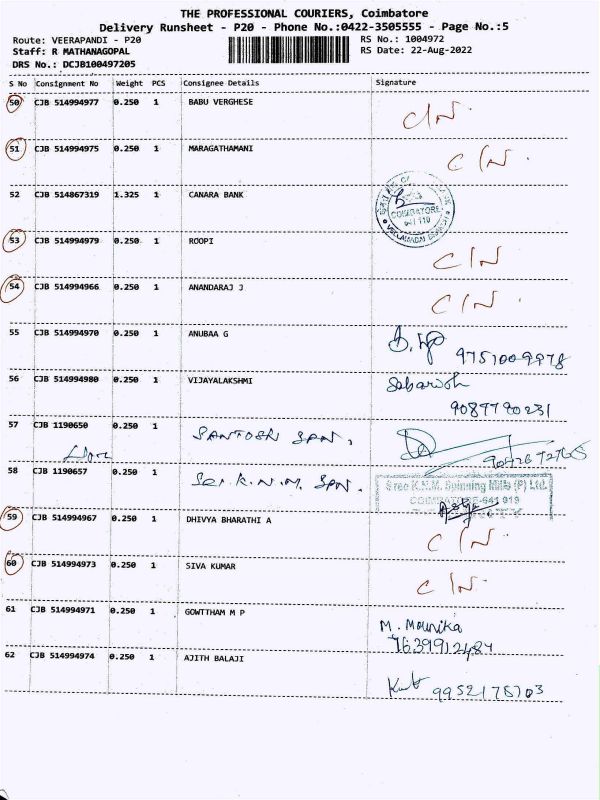 THE PROFESSIONAL COURIERS, Coimbatore
Delivery Runsheet - P20 - Phone No.:0422-3505555 - Page No.:5
Route: VEERAPANDI - P20 RS No.: 1004972
Staff: R MATHANAGOPAL RS Date: 22-Aug-2022
DRS No.: DCJB100497205
S No Consignment No Weight PCS Consignee Details Signature
50 CJB 514994977 0.250 1 BABU VERGHESE C/N
51 CJB 514994975 0.250 1 MARAGATHAMANI C/N
52 CJB 514867319 1.325 1 CANARA BANK COIMBATORE
53 CJB 514994979 0.250 1 ROOPI C/N
54 CJB 514994966 0.250 1 ANANDARAJ J C/N
55 CJB 514994970 0.250 1 ANUBAA G 9751009978
56 CJB 514994980 0.250 1 VIJAYALAKSHMI Sabarish
9087790231
57 CJB 1190650 0.250 1 SANTOSH SPN.
58 CJB 1190657 0.250 1 Sri.K.N.M. SPN. Sree K.N.M. Spinning Mills (P) Ltd.
COIMBATORE-641 019
59 CJB 514994967 0.250 1 DHIVYA BHARATHI A C/N
60 CJB 514994973 0.250 1 SIVA KUMAR C/N
61 CJB 514994971 0.250 1 GOWTTHAM M P M. Mounika
7639912484
62 CJB 514994974 0.250 1 AJITH BALAJI 9952178703